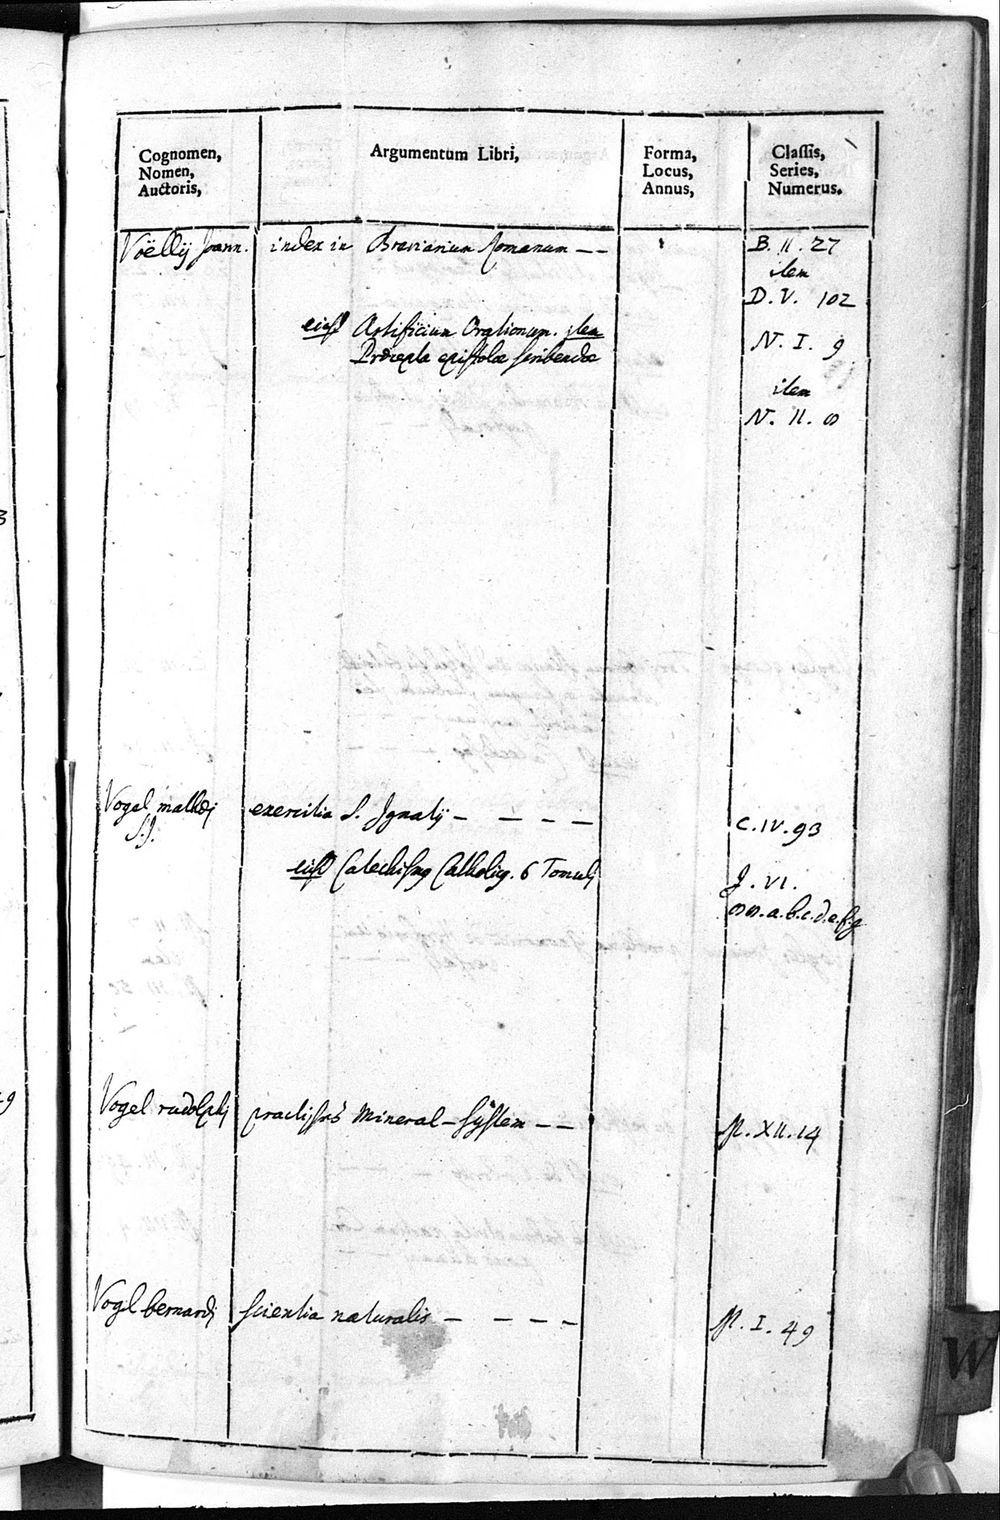 Cognomen,
Nomen,
Auctoris,
Argumentum Libri,
Forma,
Locus,
Annus,
Classis,
Series,
Numerus.
Voëllij Joann. index in Breviarium Romanum — — B. II. 27
item
D. V. 102
eiusd Artificium Orationum. item N. I. 9
Præcepta epistolæ scribendæ
item
N. II. 8
Vogel matthæi exercitia S. Ignatij — — — — C. IV. 93
S. J.
eiusd Catechismus Catholicus. 6 Tomuli J. VI.
88. a. b. c. d. e. f. g
Vogel rudolphi practisches Mineral-System — — M. XII. 14
Vogel bernardi scientia naturalis — — — — M. I. 49
W